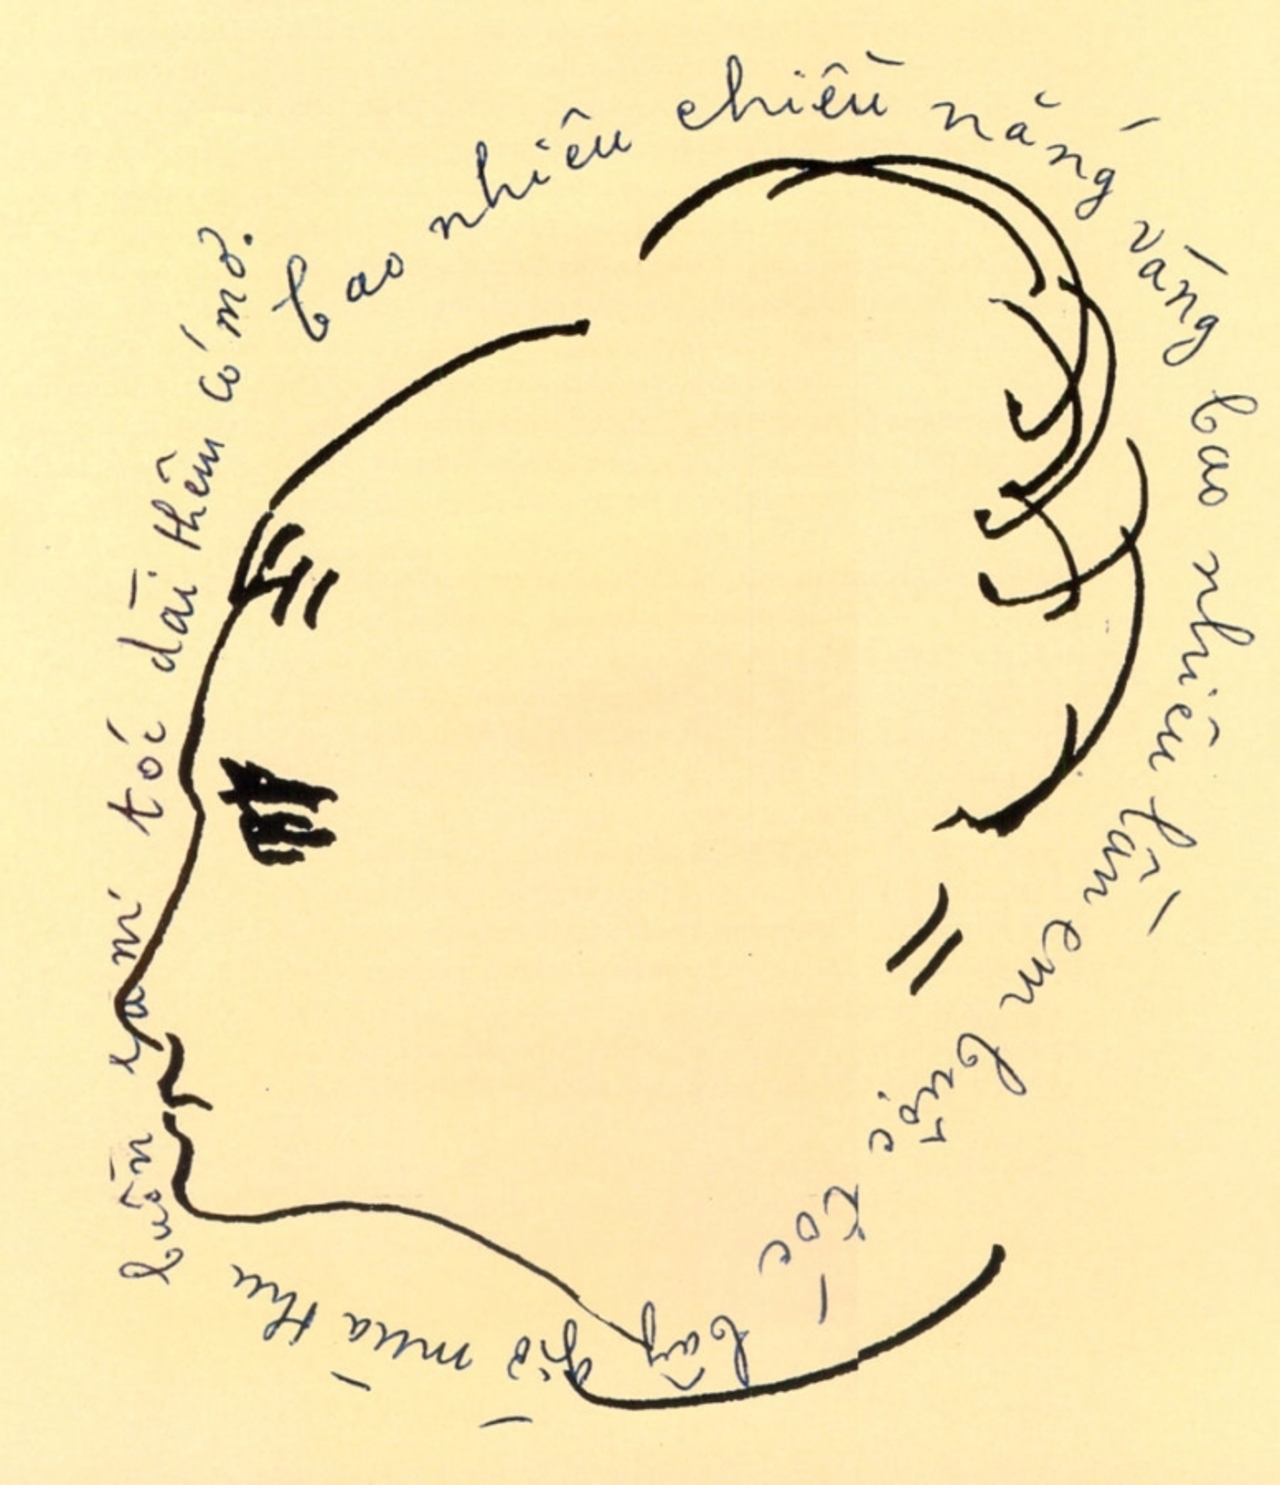 bao nhiêu chiều nắng vàng bao nhiêu lần em buộc tóc bây giờ mùa thu buồn rạm tóc dài thêm có mơ.